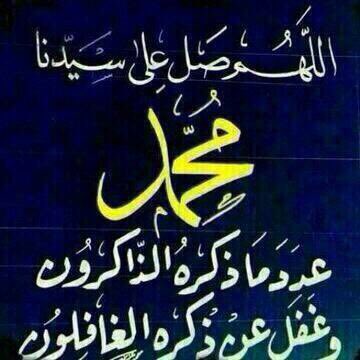 اللَّهُم صَل على سَيِّدنا
مُحَمَّد
عدَدَ مَا ذكَره الذَّاكرُون
وغَفَلَ عَنْ ذكره الغَافِلُون